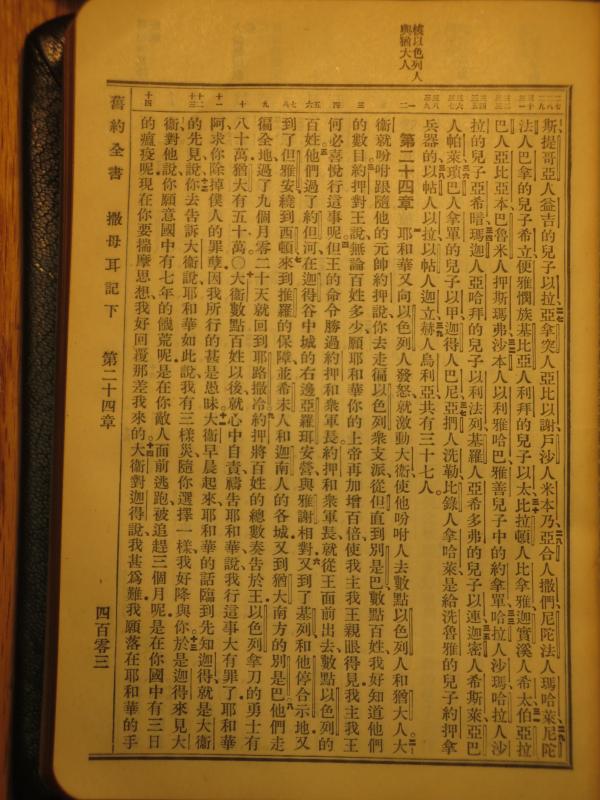 橫以色列人
與猶大人
斯提哥亞人益吉的兒子以拉亞拿突人亞比以謝戶沙人米本乃亞合人撒們尼陀法人瑪哈萊尼陀
法人巴拿的兒子希立便雅憫族基比亞人利拜的兒子以太比拉頓人比拿雅迦實溪人希太伯亞拉
巴人亞比亞本巴魯米人押斯瑪弗沙本人以利雅哈巴雅善兒子中的約拿單哈拉人沙瑪哈拉人沙
拉的兒子亞希暗瑪迦人亞哈拜的兒子以利法列基羅人亞希多弗的兒子以連迦密人希斯萊亞巴
人帕萊瑣巴人拿單的兒子以甲迦得人巴尼亞捫人洗勒比錄人拿哈萊是給洗魯雅的兒子約押拿
兵器的以帖人以拉以帖人迦立赫人烏利亞共有三十七人。
第二十四章 耶和華又向以色列人發怒就激動大衛使他吩咐人去數點以色列人和猶大人大
衛就吩咐跟隨他的元帥約押說你去走徧以色列衆支派從但直到別是巴數點百姓我好知道他們
的數目約押對王說無論百姓多少願耶和華你的上帝再加增百倍使我主我王親眼得見我主我王
何必喜悅行這事呢但王的命令勝過約押和衆軍長約押和衆軍長就從王面前出去數點以色列的
百姓他們過了約但河在迦得谷中城的右邊亞羅珥安營與雅謝相對又到了基列和他停合示地又
到了但雅安繞到西頓來到推羅的保障並希未人和迦南人的各城又到猶大南方的別是巴他們走
徧全地過了九個月零二十天就回到耶路撒冷約押將百姓的總數奏告於王以色列拿刀的勇士有
八十萬猶大有五十萬○大衛數點百姓以後就心中自責禱告耶和華說我行這事大有罪了耶和華
阿求你除掉僕人的罪孽因我所行的甚是愚昧大衛早晨起來耶和華的話臨到先知迦得就是大衛
的先見說你去告訴大衛說耶和華如此說我有三樣災隨你選擇一樣我好降與你於是迦得來見大
衛對他說你願意國中有七年的饑荒呢是在你敵人面前逃跑被追趕三個月呢是在你國中有三日
的瘟疫呢現在你要揣摩思想我好回覆那差我來的大衛對迦得說我甚爲難我願落在耶和華的手
舊約全書 撒母耳記下 第二十四章 四百零三